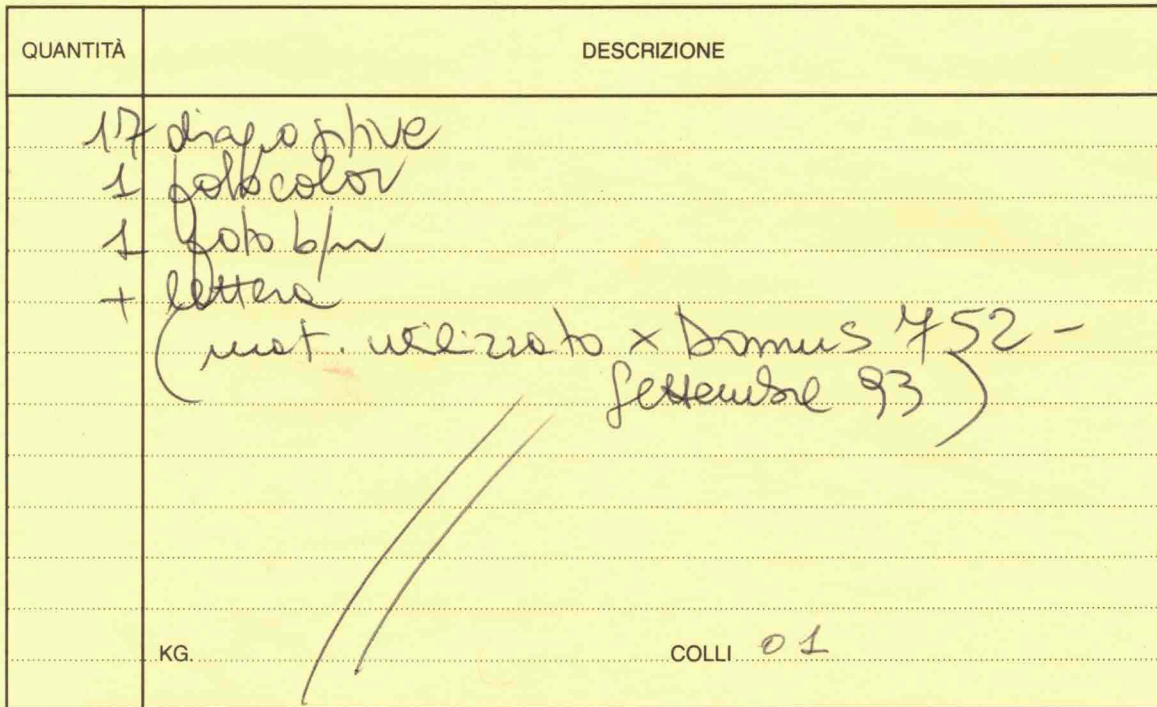 QUANTITÀ DESCRIZIONE
17 diapositive
1 fotocolor
1 foto b/n
+ lettera
(mat. utilizzato x Domus 752 -
Settembre 93)
KG. COLLI 01